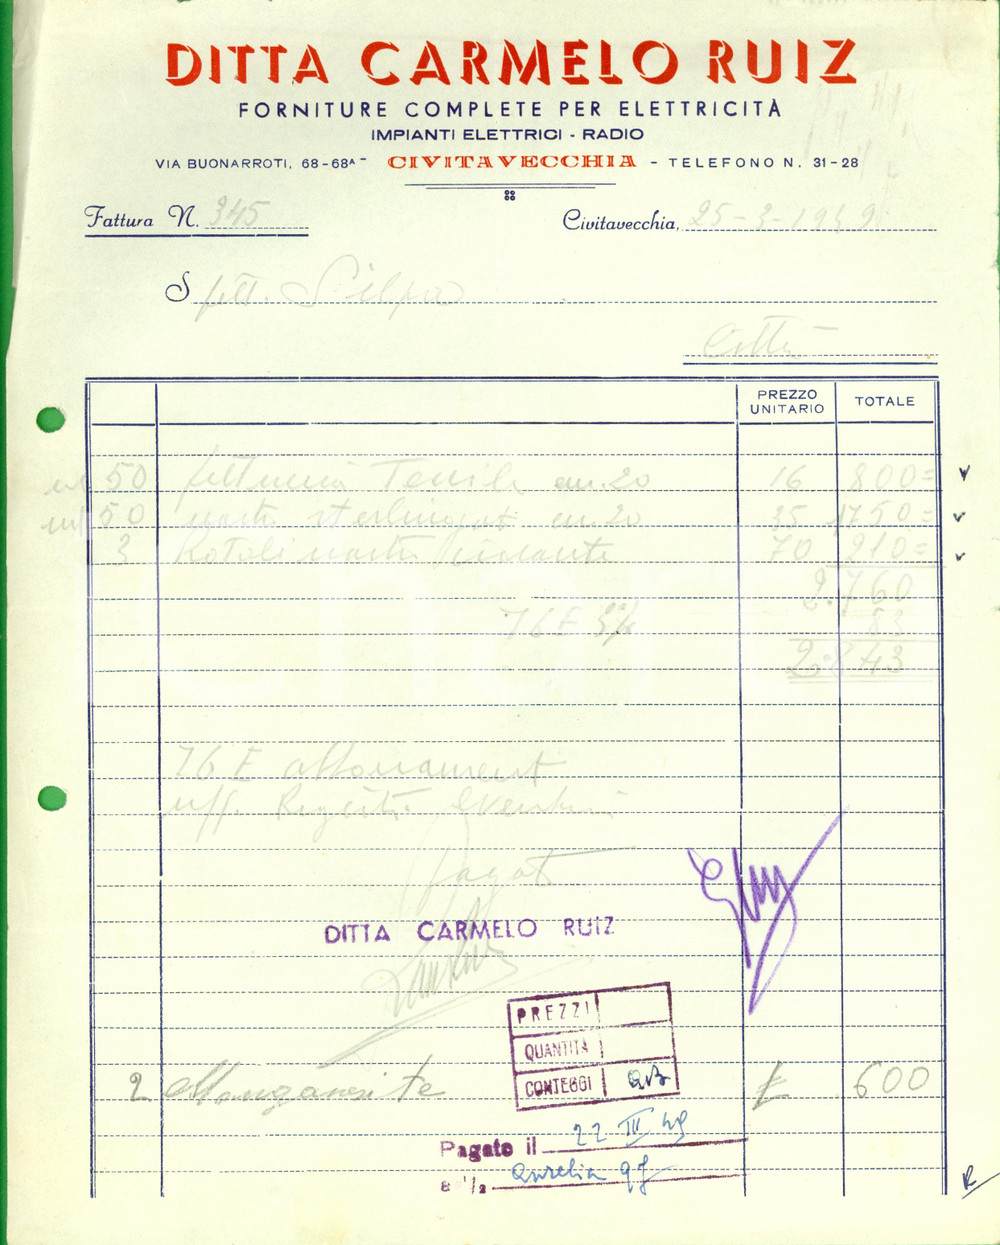 DITTA CARMELO RUIZ
FORNITURE COMPLETE PER ELETTRICITÀ
IMPIANTI ELETTRICI - RADIO
VIA BUONARROTI, 68-68A - CIVITAVECCHIA - TELEFONO N. 31-28
Fattura N. 345 Civitavecchia, 25-3-1949
Spett. Silpa
Città
PREZZO UNITARIO TOTALE
50 fettuccia Tessile 20 16 800=
50 nastro sterlingato 20 35 1750=
3 Rotoli nastro 70 210=
2.760
I G E 3% 83
2.843
I G E abbonamento
uff. Registro
pagato
DITTA CARMELO RUIZ
PREZZI
QUANTITÀ
CONTEGGI
2 £ 600
Pagato il 22 III 49
Aurelia 97
R